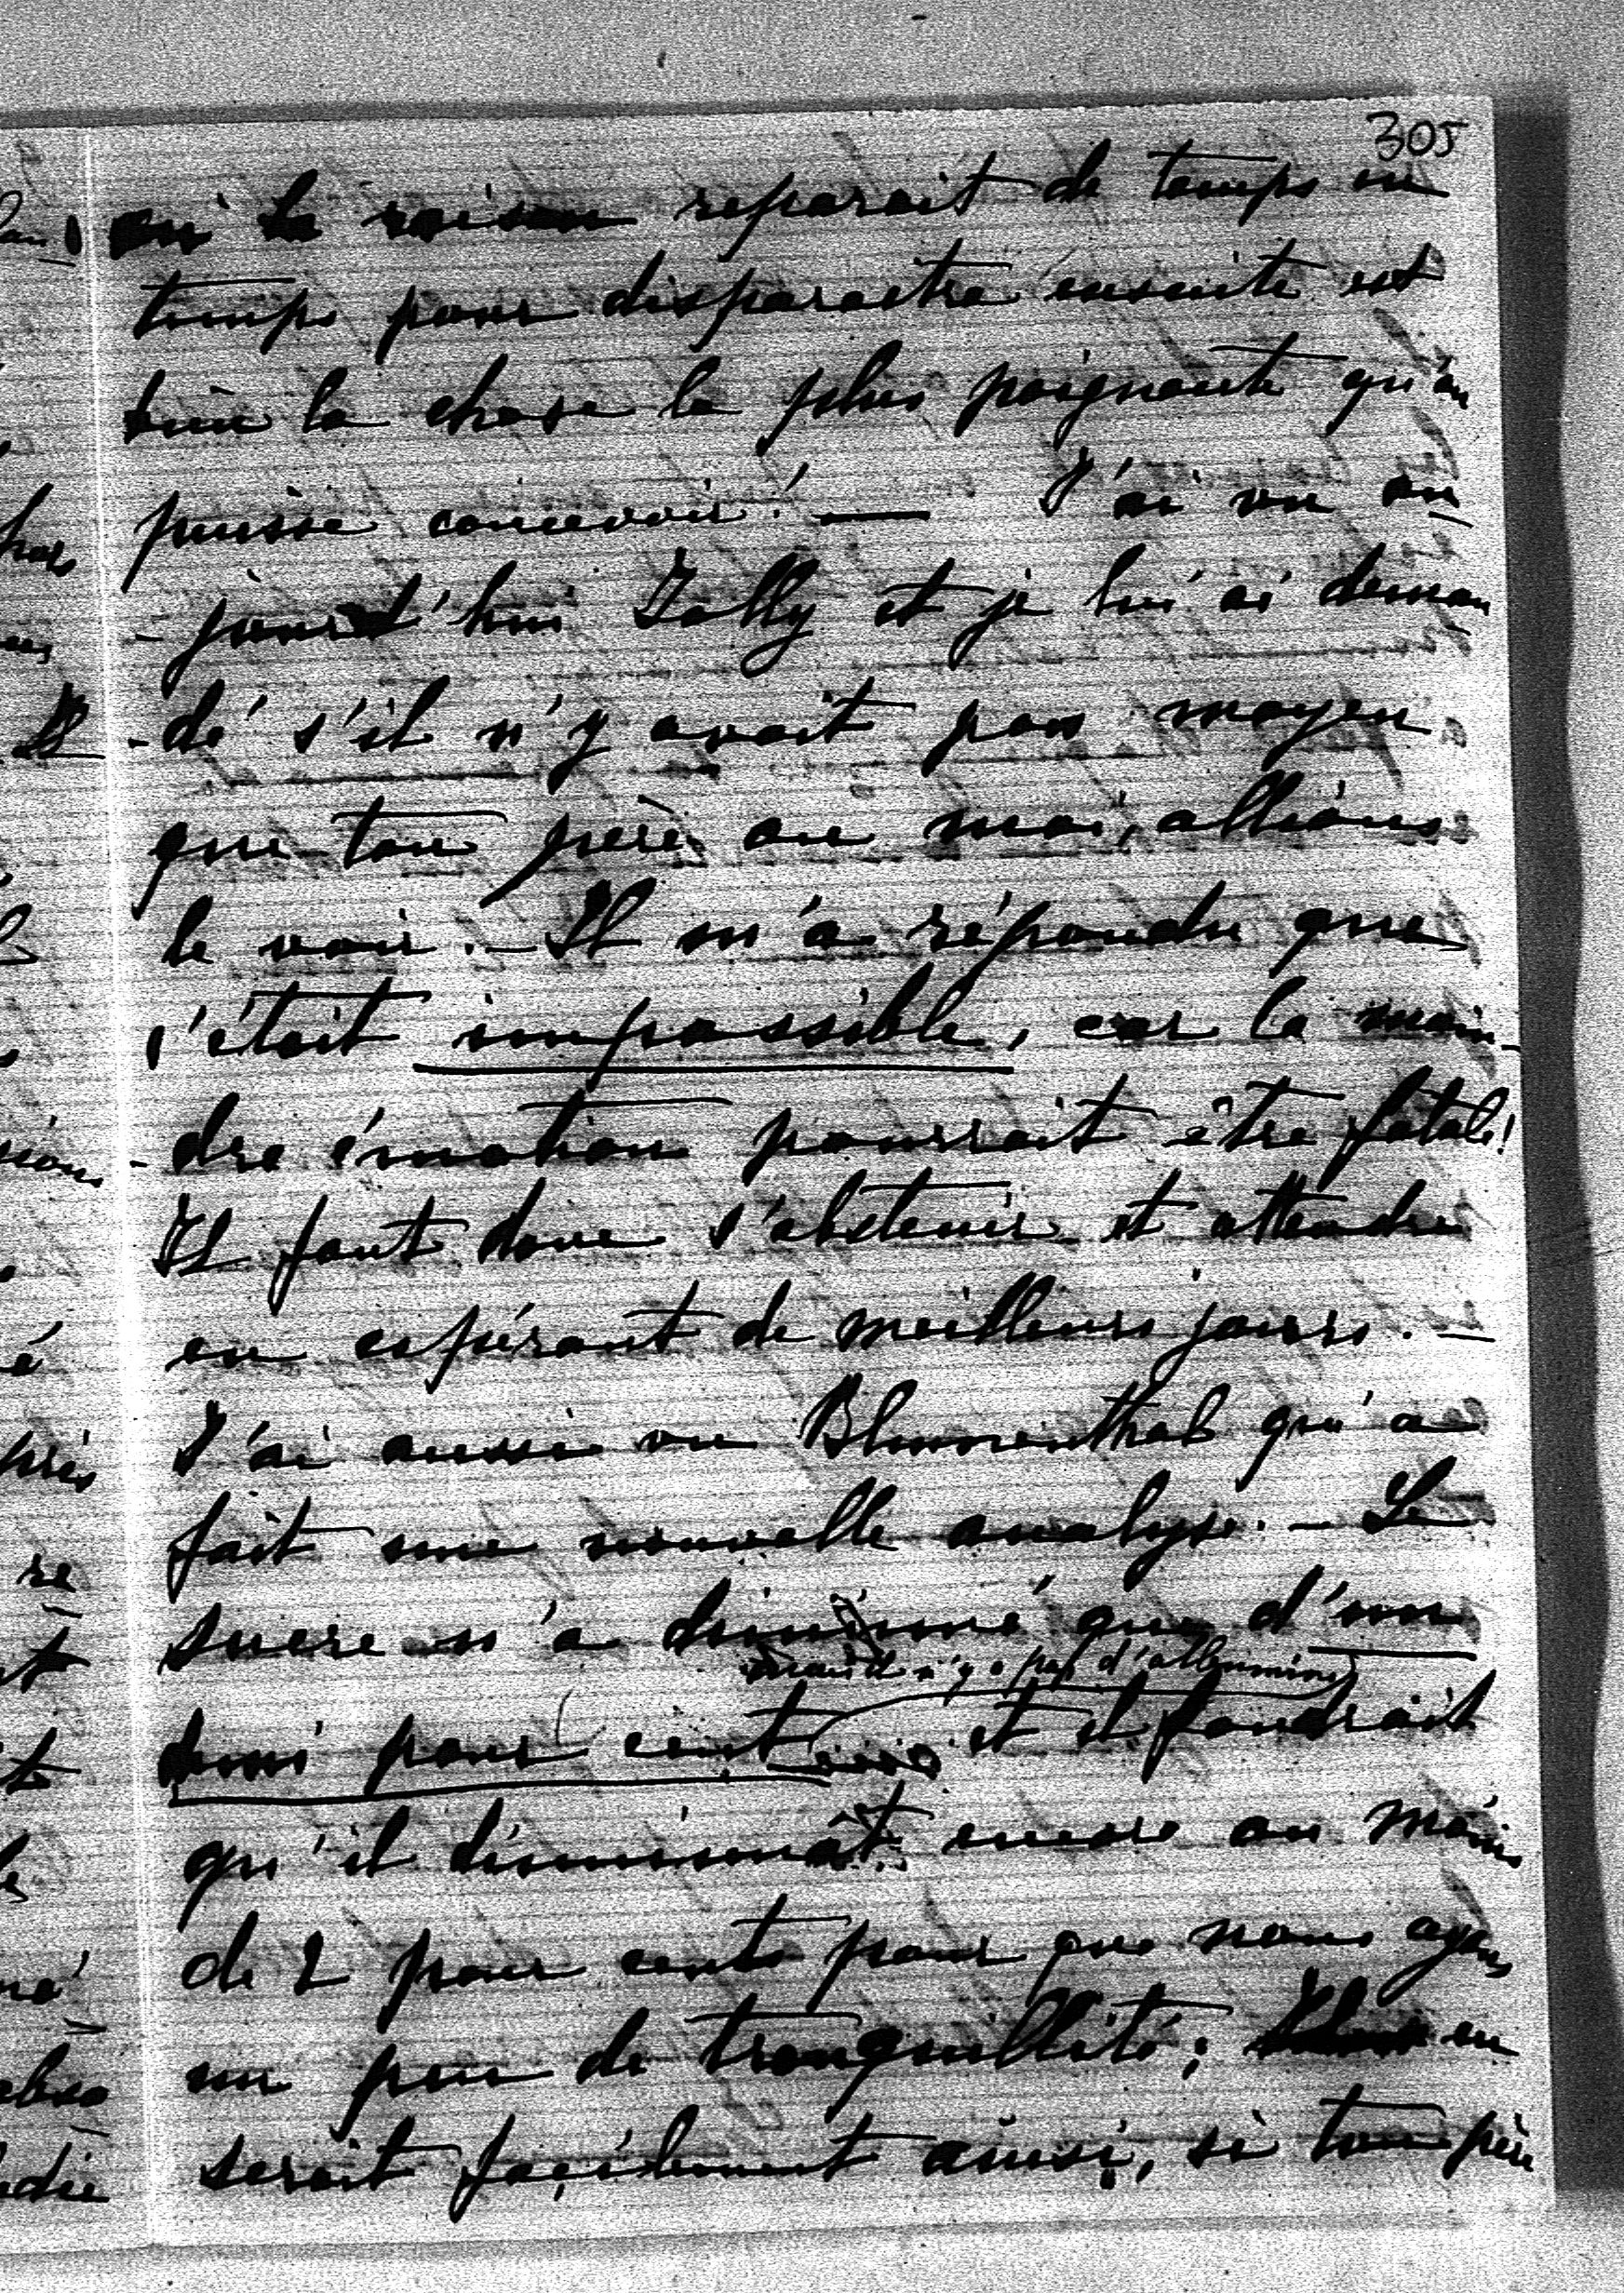 305
où la raison reparait de temps en
temps pour disparaitre ensuite est
bien la chose la plus poignante qu'on
puisse concevoir! — J'ai vu au
- jourd'hui Jolly et je lui ai deman
- dé s'il n'y avait pas moyen
que ton père ou moi, allions
le voir. - Il m'a répondu que
c'était impossible, car la moin-
- dre émotion pourrait être fatale!
Il faut donc s'abstenir et attendre
en espérant de meilleurs jours. —
J'ai aussi vu Blumenthal qui a
fait une nouvelle analyse. - Le
sucre n'a diminué que d'un
mais il n'y a pas d'albumine
demi pour cent et il faudrait
qu'il diminuât encore au moins
de 2 pour cent pour que nous ayons
un peu de tranquillité; en
serait facilement ainsi, si ton père